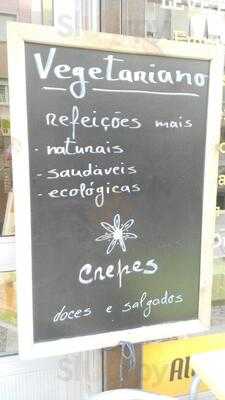 Vegetariano
refeições mais
- naturais
- saudáveis
- ecológicas
crepes
doces e salgados